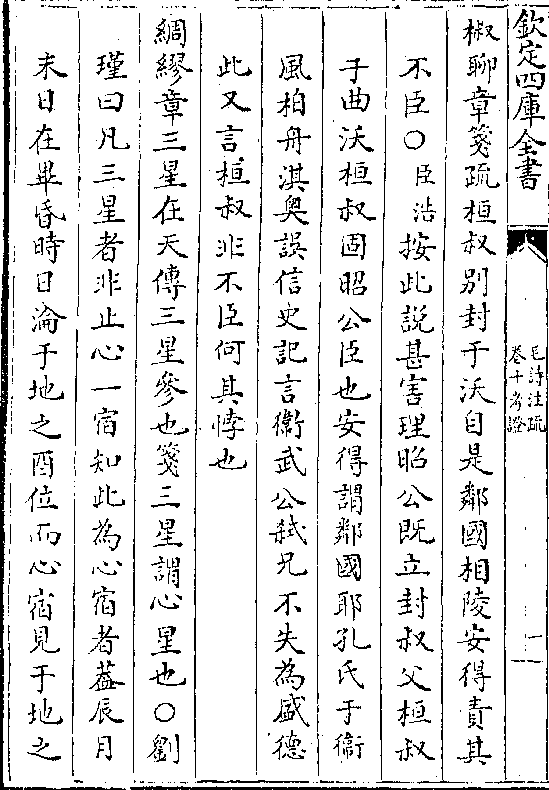 欽定四庫全書
毛詩注疏
卷十考證
一
椒聊章箋疏桓叔別封于沃自是鄰國相陵安得責其
不臣○臣浩按此說甚害理昭公既立封叔父桓叔
于曲沃桓叔固昭公臣也安得謂鄰國耶孔氏于衞
風柏舟淇奥誤信史記言衞武公弑兄不失為盛德
此又言桓叔非不臣何其悖也
綢繆章三星在天傳三星參也箋三星謂心星也○劉
瑾曰凡三星者非止心一宿知此為心宿者葢辰月
末日在畢昏時日淪于地之酉位而心宿見于地之